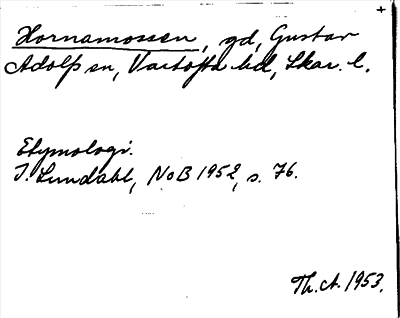 +
Hornamossen, gd, Gustav
Adolf sn, Vartofta hd, Skar. l.
Etymologi.
I. Lundahl, NoB 1952, s. 76.
Th. A. 1953.